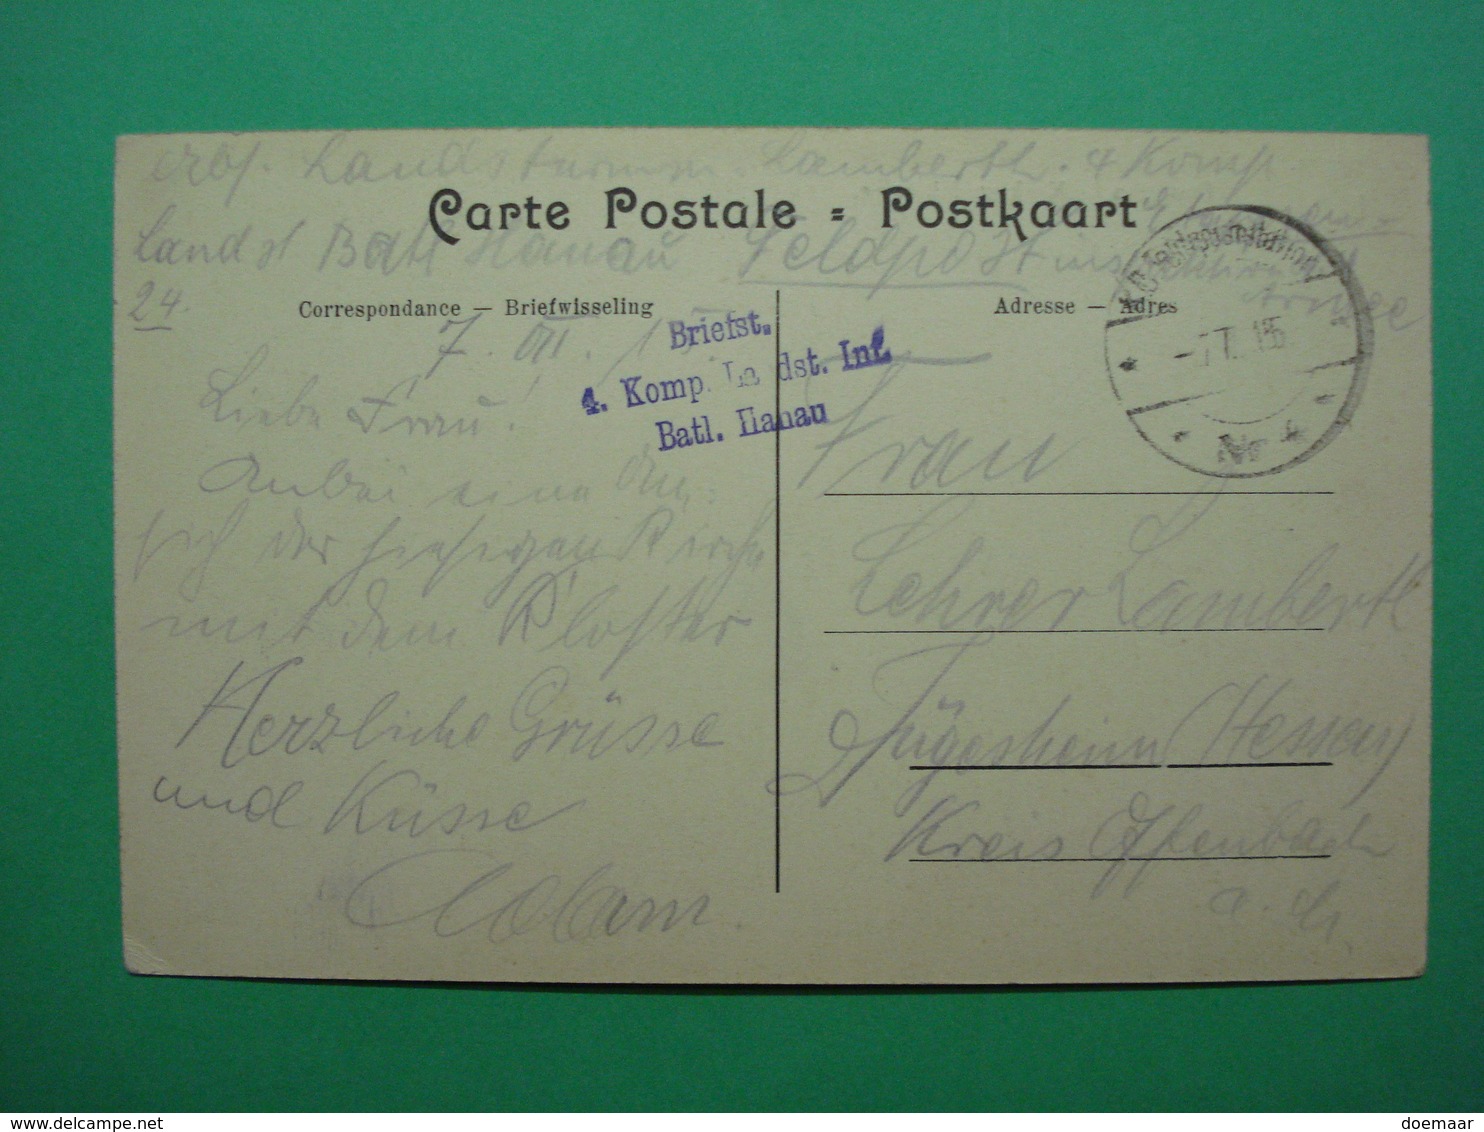 Abs. Landsturmm. Lamberth. 4 Komp
Landst Batl Hanau Feldpost
24.
Carte Postale = Postkaart
Armee
Correspondance — Briefwisseling
Adresse — Adres
7. VII. 15
Briefst.
4. Komp. Landst. Inf.
Batl. Hanau
-7.7.15
Nr 4
Liebe Frau!
Anbei eine An-
sicht der hiesigen Kirche
mit dem Kloster
Herzliche Grüsse
und Küsse
Adam
Frau
Lehrer Lamberth
Jügesheim (Hessen)
Kreis Offenbach
a. M.
doemaar